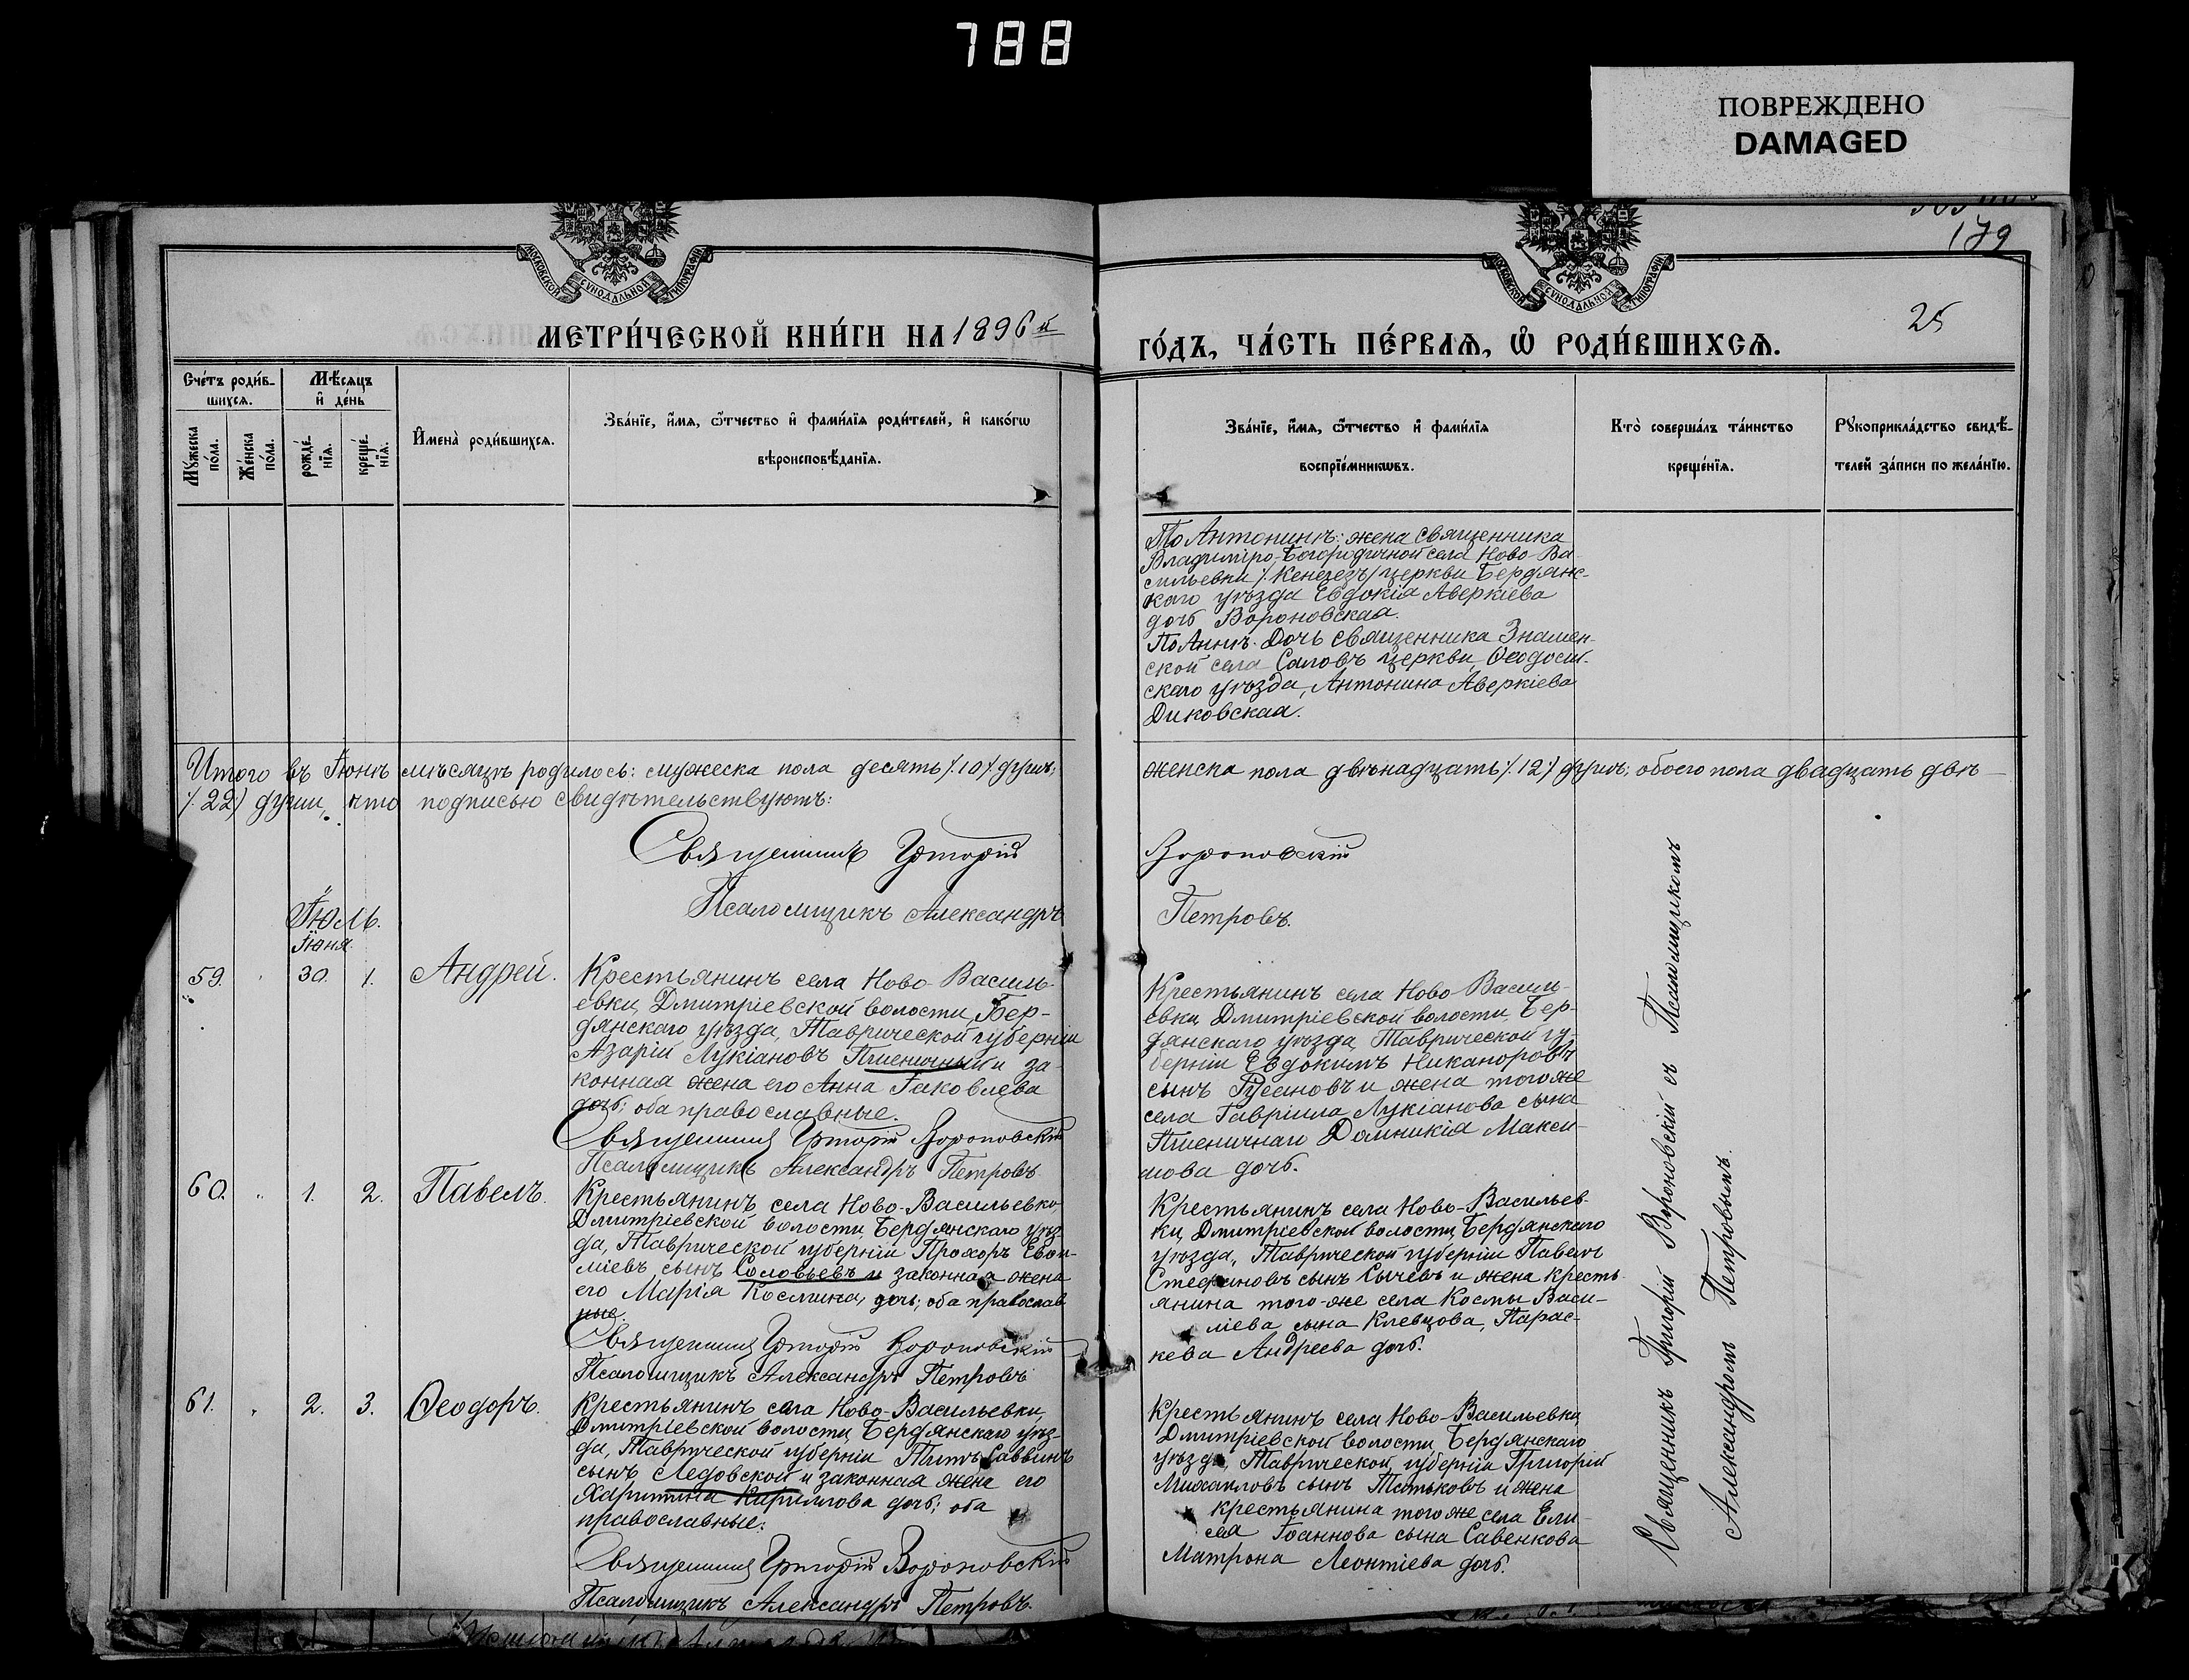 788
ПОВРЕЖДЕНО
DAMAGED
179
25
МОСКОВСКОЙ СУНОДАЛЬНОЙ ТИПОГРАФІИ
МОСКОВСКОЙ СУНОДАЛЬНОЙ ТИПОГРАФІИ
МЕТРИ́ЧЕСКОЙ КНИ́ГИ НА 1896й
ГО́ДЪ, ЧА́СТЬ ПЕ́РВАѦ, Ѡ҆ РОДИ́ВШИХСѦ.
Сче́тъ роди́в-
шихсѧ.
Мꙋ́жеска
по́ла.
Же́нска
по́ла.
Мѣ́сѧцъ
и҆ де́нь
рожде́-
нїѧ.
креще́-
нїѧ.
И҆мена̀ роди́вшихсѧ.
Зва́нїе, и҆́мѧ, ѻ҆́тчество и҆ фами́лїѧ роди́телей, и҆ како́гѡ
вѣроисповѣ́данїѧ.
Зва́нїе, и҆́мѧ, ѻ҆́тчество и҆ фами́лїѧ
воспрїе́мникѡвъ.
Кто̀ соверша́лъ та́инство
креще́нїѧ.
Рꙋкоприкла́дство свидѣ́-
телей за́писи по жела́нїю.
По Антонинѣ: жена священника
Владимiро-Богородичной села Ново-Ва-
сильевки /: Кенегезъ / церкви Бердянс-
каго уѣзда Евдокія Аверкіева
дочь Вороновская.
По Аннѣ. Дочь священника Знамен-
ской села Саловъ церкви, Ѳеодосій-
скаго уѣзда, Антонина Аверкіева
Диковская.
Итого въ Іюнѣ мѣсяцѣ родилось: мужеска пола десять /:10/ душъ;
женска пола двѣнадцать /:12/ душъ; обоего пола двадцать двѣ
/:22/ души, что подписью свидѣтельствуютъ:
Священникъ Григорій
Вороновскій
Псаломщикъ Александръ
Петровъ.
Іюль.
Іюня.
59. " 30. 1. Андрей.
Крестьянинъ села Ново-Василь-
евки, Дмитріевской волости, Бер-
дянскаго уѣзда, Таврической губерніи
Азарій Лукіановъ Пшеничный и за-
конная жена его Анна Іаковлева
дочь; оба православные.
Священникъ Григорій Вороновскій
Псаломщикъ Александръ Петровъ.
Крестьянинъ села Ново-Василь-
евки Дмитріевской волости, Бер-
дянскаго уѣзда, Таврической гу-
берніи Евдокимъ Никаноровъ
сынъ Русановъ и жена того же
села Гавріила Лукіанова сына
Пшеничнаго Домникія Макси-
мова дочь.
60. " 1. 2. Павелъ.
Крестьянинъ села Ново-Васильевки,
Дмитріевской волости, Бердянскаго уѣз-
да, Таврической губерніи Прохоръ Евѳи-
міевъ сынъ Соловьевъ и законная жена
его Марія Космина, дочь; оба православ-
ные.
Священникъ Григорій Вороновскій
Псаломщикъ Александръ Петровъ
Крестьянинъ села Ново-Васильев-
ки, Дмитріевской волости, Бердянскаго
уѣзда, Таврической губерніи Павелъ
Стефановъ сынъ Сычевъ и жена кресть-
янина того-же села Космы Васи-
ліева сына Клевцова, Парас-
кева Андреева дочь.
61. " 2. 3. Ѳеодоръ.
Крестьянинъ села Ново-Васильевки,
Дмитріевской волости, Бердянскаго уѣз-
да, Таврической губерніи Титъ Саввинъ
сынъ Ледовской и законная жена его
Харитина Кириллова дочь; оба
православные.
Священникъ Григорій Вороновскій
Псаломщикъ Александръ Петровъ.
Крестьянинъ села Ново-Васильевки
Дмитріевской волости, Бердянскаго
уѣзда, Таврической губерніи Григорій
Михаиловъ сынъ Татьковъ и жена
крестьянина того же села Ели-
сея Іоаннова сына Савенкова
Матрона Леонтіева дочь.
Священникъ Григорій Вороновскій съ Псаломщикомъ
Александромъ Петровымъ.